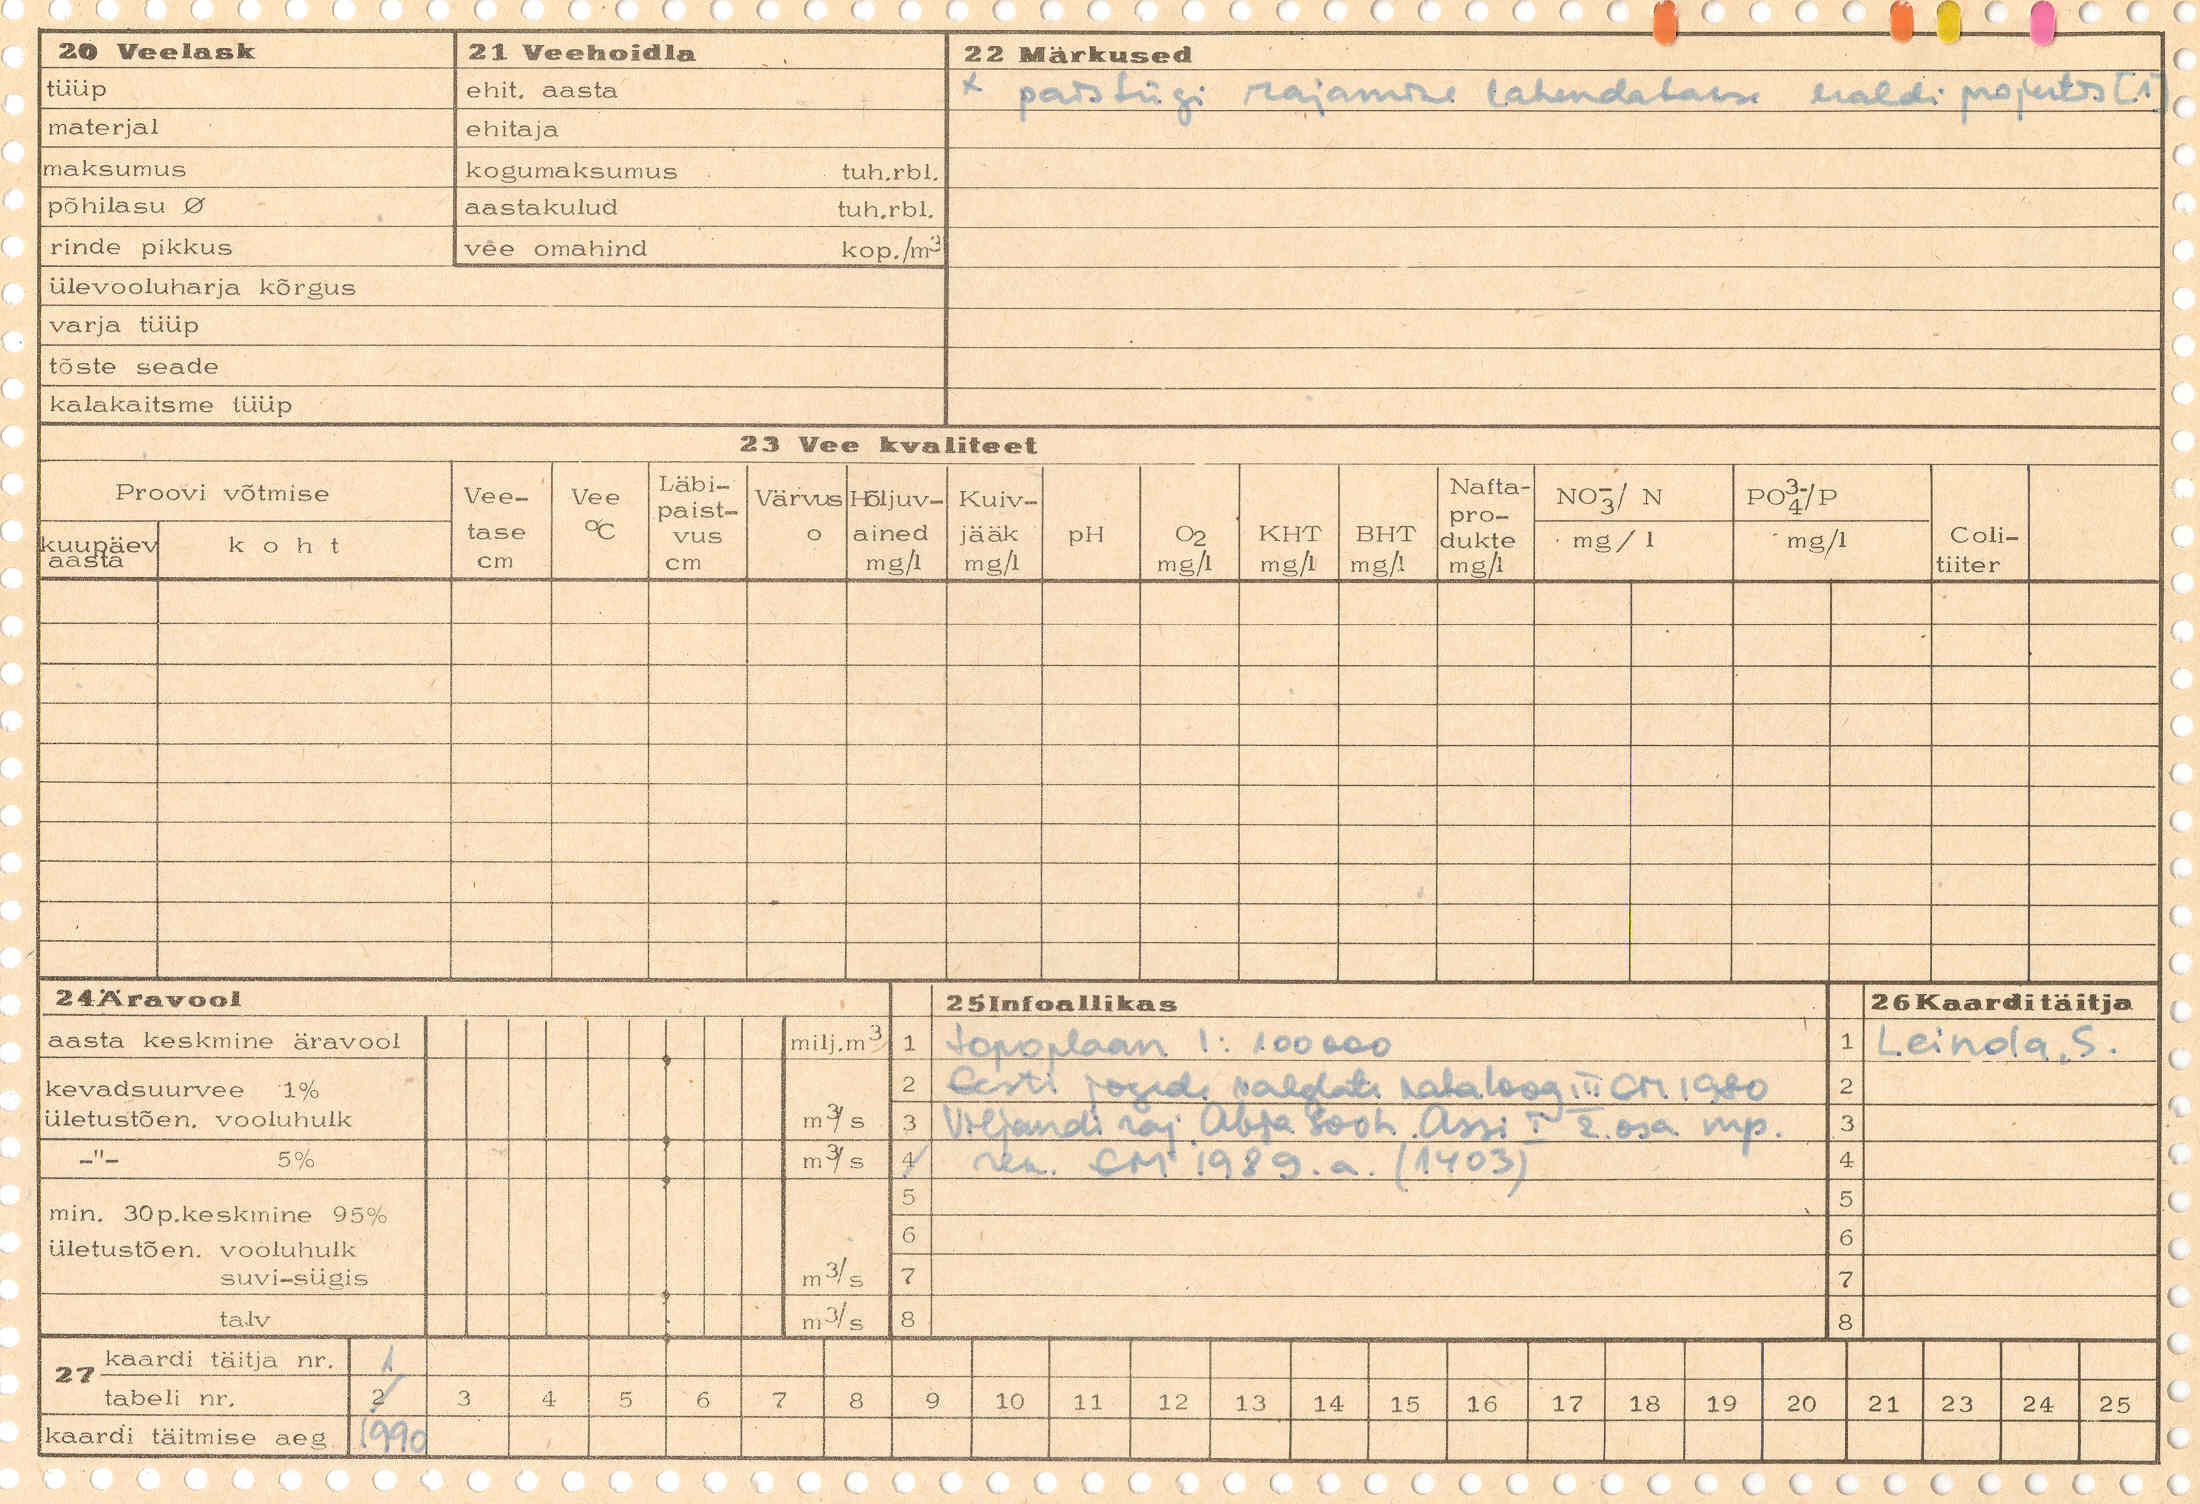 20 Veelask
tüüp
materjal
maksumus
põhilasu Ø
rinde pikkus
ülevooluharja kõrgus
varja tüüp
tõste seade
kalakaitsme tüüp
21 Veehoidla
ehit. aasta
ehitaja
kogumaksumus tuh.rbl.
aastakulud tuh.rbl.
vee omahind kop./m³
22 Märkused
x paistiigi rajamine lahendatakse eraldi projektis [1]
23 Vee kvaliteet
Proovi võtmise
kuupäev
aasta
koht
Vee-
tase
cm
Vee
°C
Läbi-
paist-
vus
cm
Värvus
o
Hõljuv-
ained
mg/l
Kuiv-
jääk
mg/l
pH
O2
mg/l
KHT
mg/l
BHT
mg/l
Nafta-
pro-
dukte
mg/l
NO3⁻/ N
mg/l
PO4³⁻/P
mg/l
Coli-
tiiter
24 Äravool
aasta keskmine äravool milj.m³
kevadsuurvee 1%
ületustõen. vooluhulk m³/s
-"- 5% m³/s
min. 30p.keskmine 95%
ületustõen. vooluhulk
suvi-sügis m³/s
talv m³/s
25 Infoallikas
1 topoplaan 1: 100000
2 Eesti jõgede valglate kataloog III EM 1980
3 Viljandi raj. Abja Sooh. Assi I 2. osa mp.
4 rek. EM 1989.a. (1403)
5
6
7
8
26 Kaarditäitja
1 Leinda, S.
2
3
4
5
6
7
8
27 kaardi täitja nr. 1
tabeli nr. 2 3 4 5 6 7 8 9 10 11 12 13 14 15 16 17 18 19 20 21 23 24 25
kaardi täitmise aeg 1990